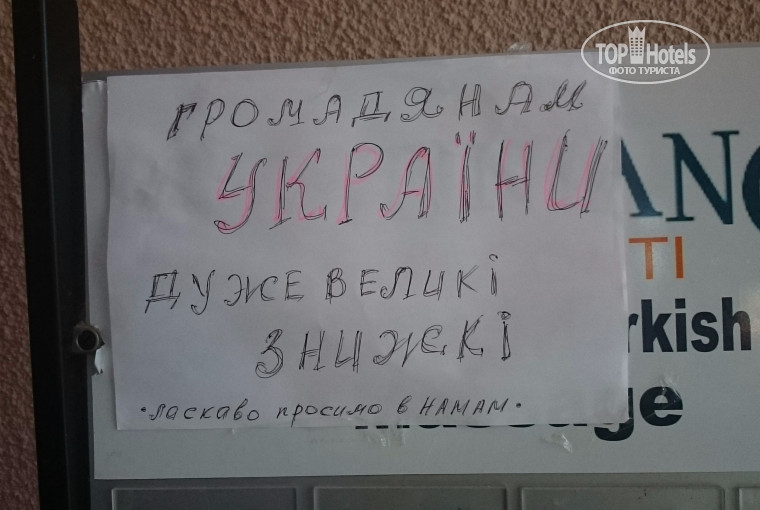 TOP Hotels
ФОТО ТУРИСТА
ГРОМАДЯНАМ
УКРАЇНИ
ДУЖЕ ВЕЛИКІ
ЗНИЖЄКІ
•ласкаво просимо в НАМАМ•
AN
TI
rkish